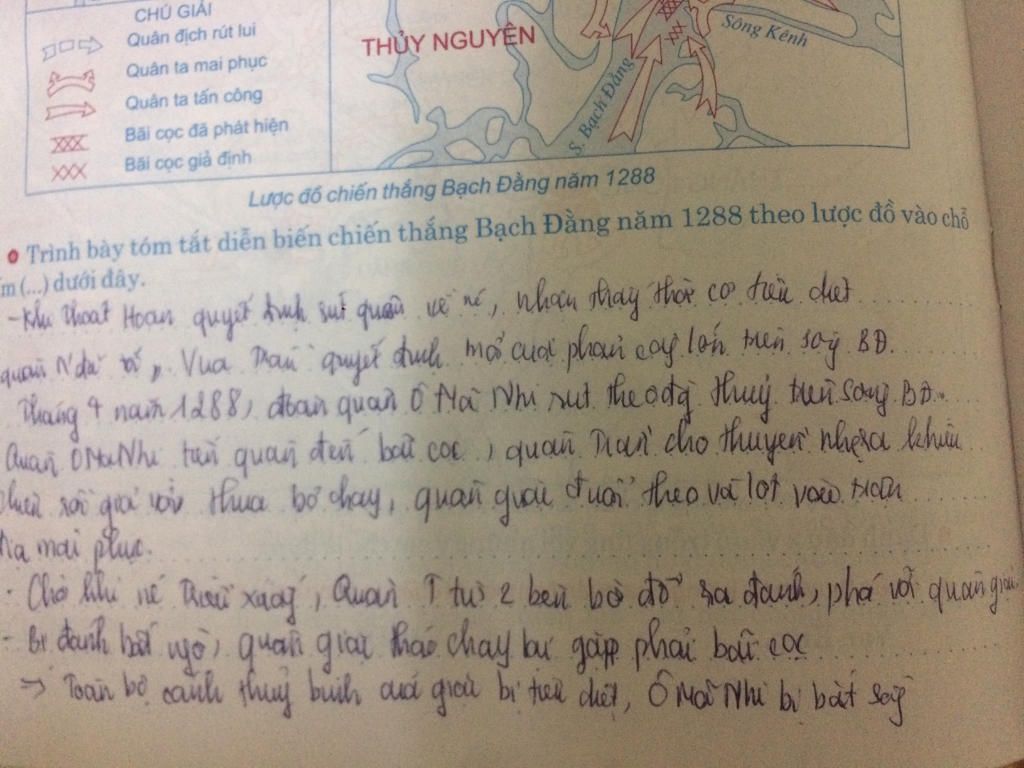 CHÚ GIẢI
Quân địch rút lui
Quân ta mai phục
Quân ta tấn công
Bãi cọc đã phát hiện
Bãi cọc giả định
THỦY NGUYÊN
Sông Kênh
S. Bạch Đằng
Lược đồ chiến thắng Bạch Đằng năm 1288
Trình bày tóm tắt diễn biến chiến thắng Bạch Đằng năm 1288 theo lược đồ vào chỗ
m (...) dưới đây.
- Khi Thoát Hoan quyết định rút quân về, nhận thấy thời cơ tiêu diệt
quân N đã , Vua Trần quyết định mở cuộc phản công lớn trên sông BĐ.
Tháng 4 năm 1288, đoàn quân Ô Mã Nhi rút theo đg thuỷ trên sông BĐ.
Quân Ô Mã Nhi tiến quân đến bãi cọc, quân Trần cho thuyền nhẹ ra khiêu
chiến rồi giả vờ thua bỏ chạy, quân giặc đuổi theo và lọt vào trận
ta mai phục.
- Chờ khi nc triều xuống, Quân T từ 2 bên bờ đổ ra đánh, phá vỡ quân giặc
- Bị đánh bất ngờ, quân giặc tháo chạy bị gặp phải bãi cọc
=> Toàn bộ cánh thuỷ binh của giặc bị tiêu diệt, Ô Mã Nhi bị bắt sống